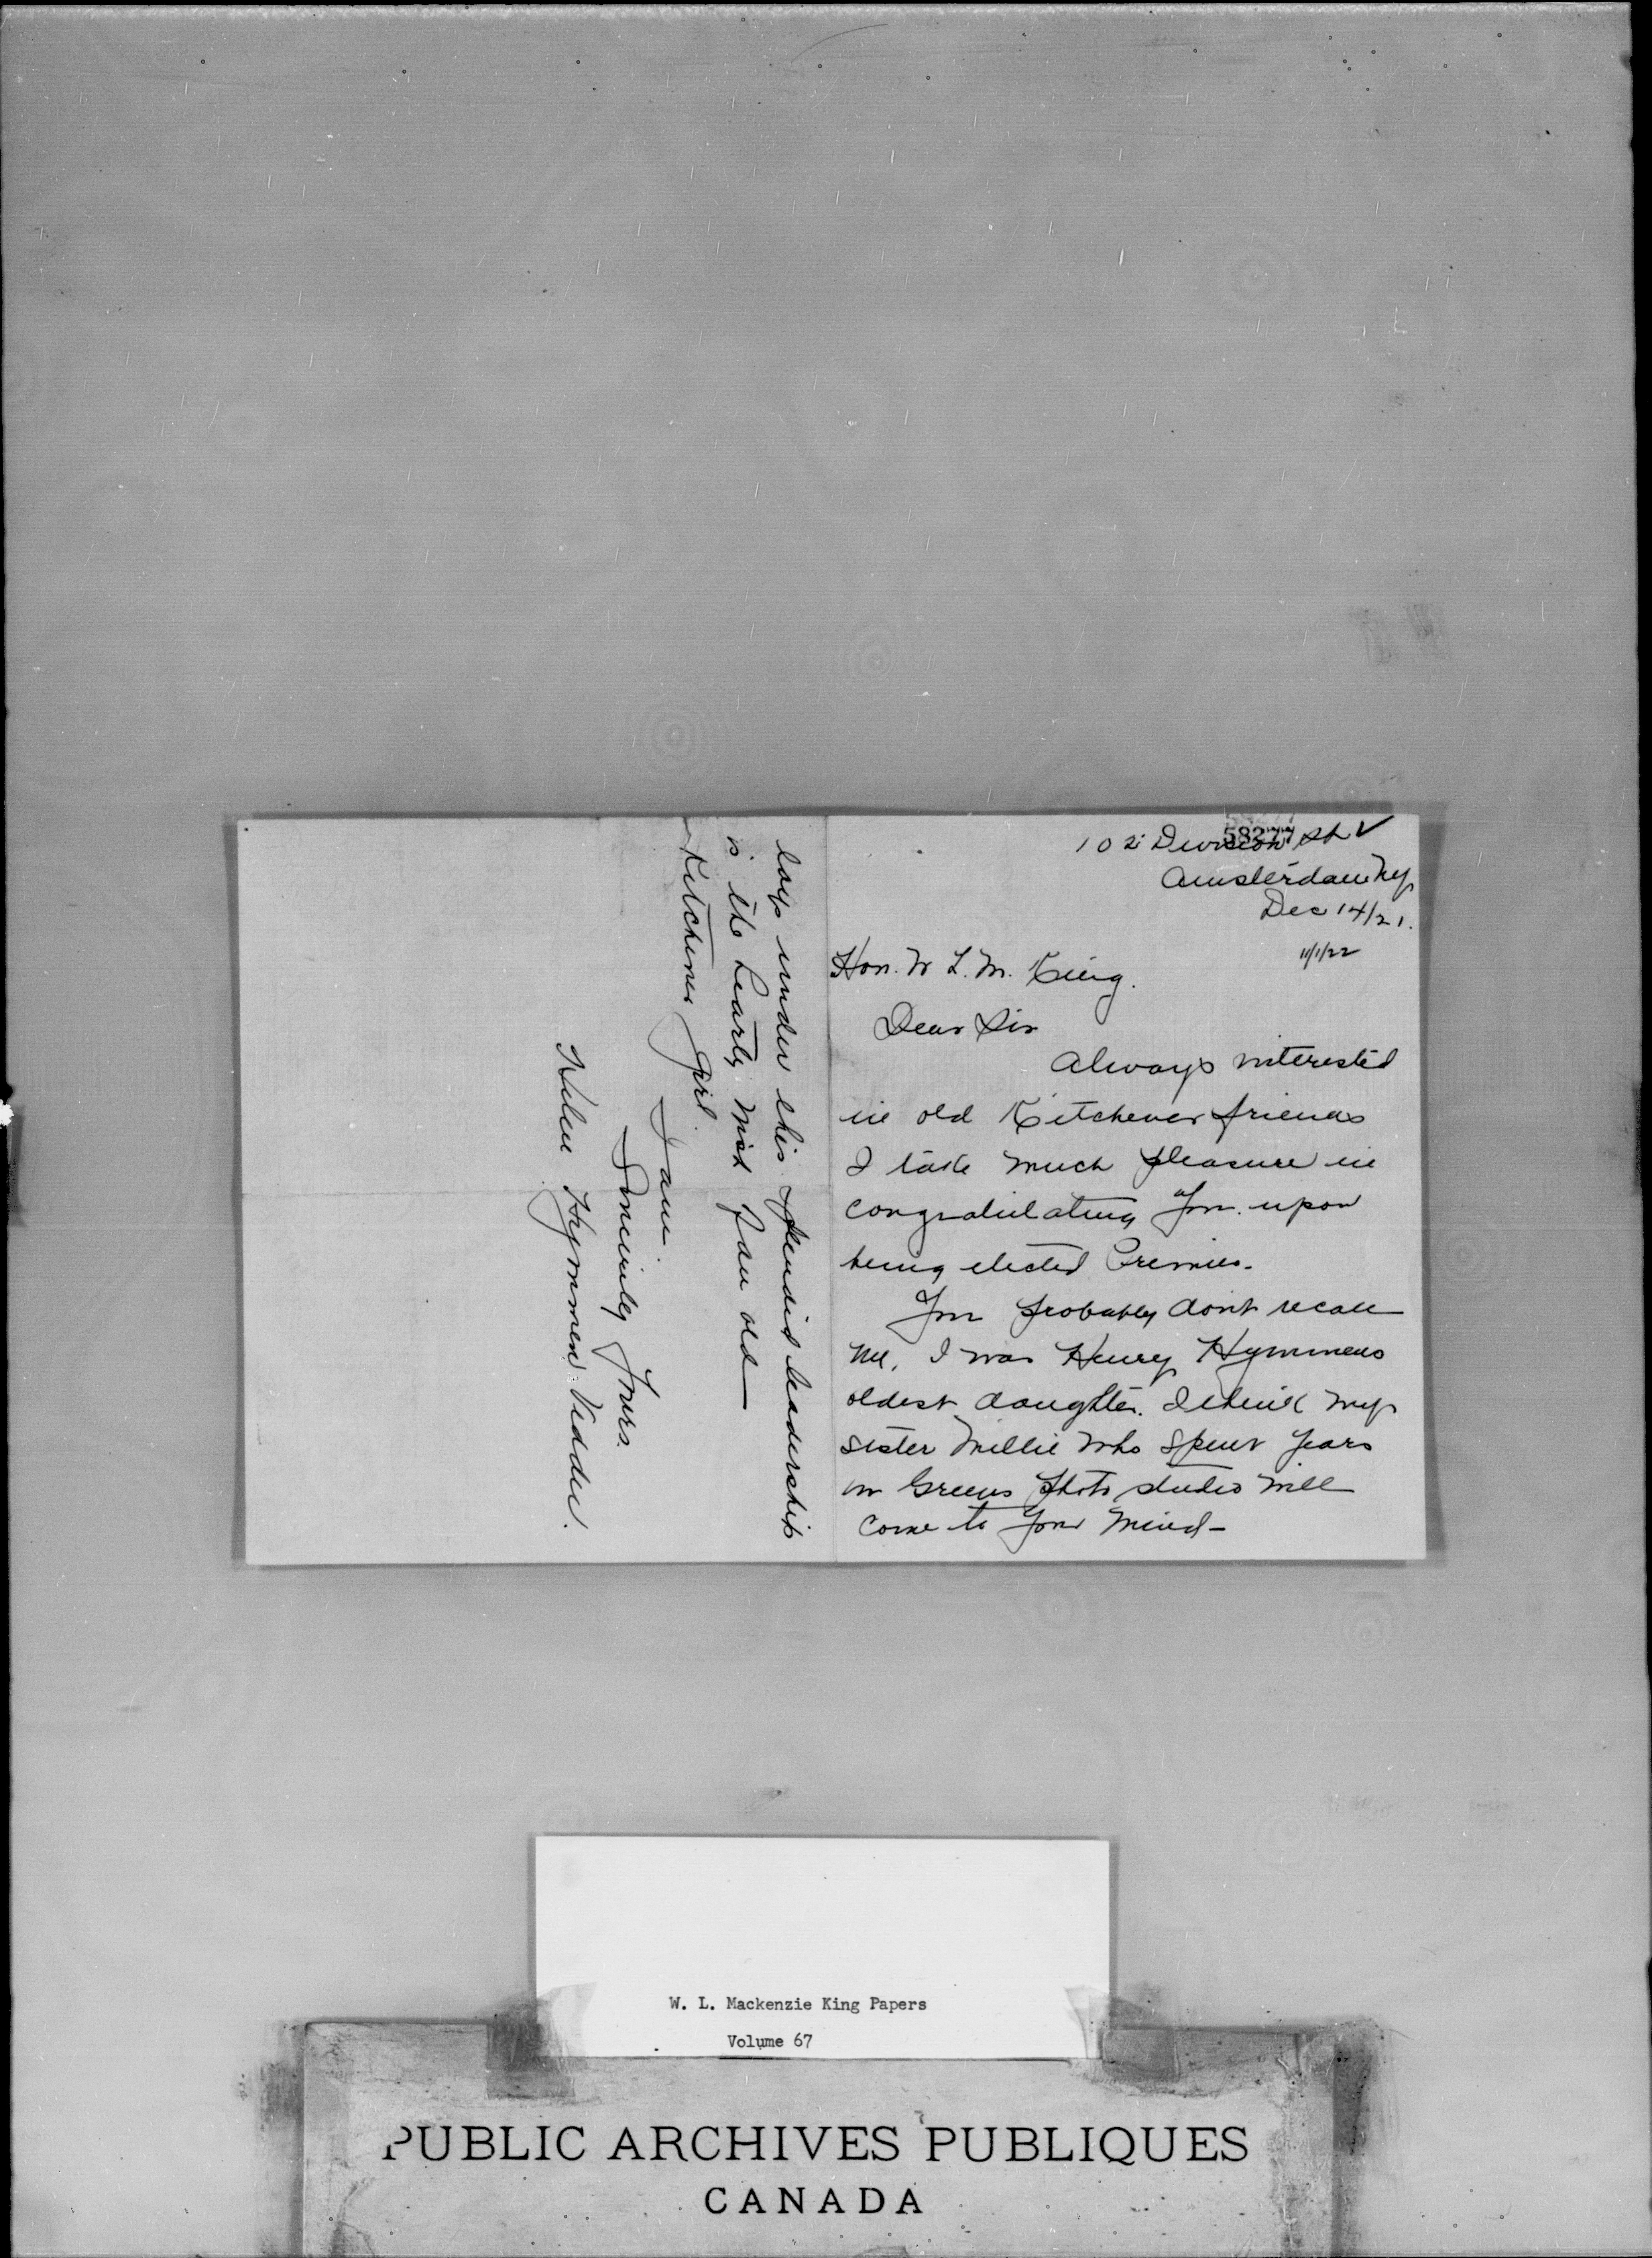 58277
102 Division St ✓
Amsterdam Ny
Dec 14/21.
11/1/22
Hon. W L. M. King.
Dear Sir
Always interested
in old Kitchener friends
I take much pleasure in
congratulating you upon
being elected Premier.
You probably dont recall
me, I was Henry Hymmens
oldest daughter. I think my
sister Millie who spent years
in Greens Photo studio will
come to your mind-
loys under this splendid leadership
is the hearty wish from old
Kitchener girl.
I am.
Sincerely Yours.
Helen Hymmen Vedder.
W. L. Mackenzie King Papers
Volume 67
PUBLIC ARCHIVES PUBLIQUES
CANADA